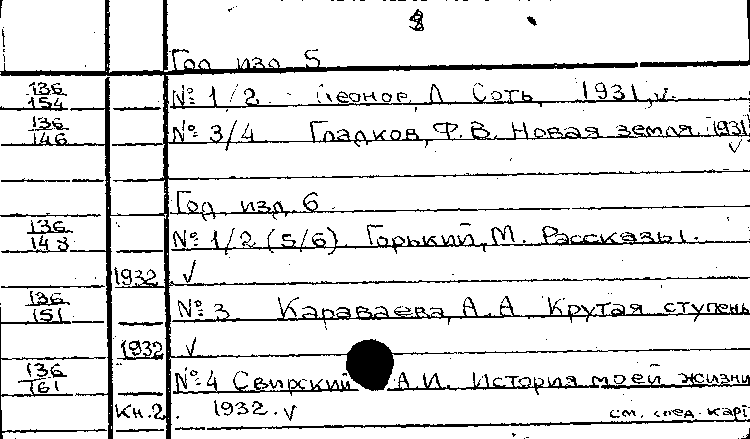 8
Год изд. 5
136/154 № 1/2. Леонов, Л. Соть, 1931, v.
136/146 № 3/4. Гладков, Ф.В. Новая земля. 1931
v
Год изд. 6
136/148 № 1/2 (5/6). Горький, М. Рассказы.
1932 v
136/151 № 3. Караваева, А.А. Крутая ступень
1932 v
136/161 № 4 Свирский А.И. История моей жизни
Кн. 2. 1932. v см. след. карт